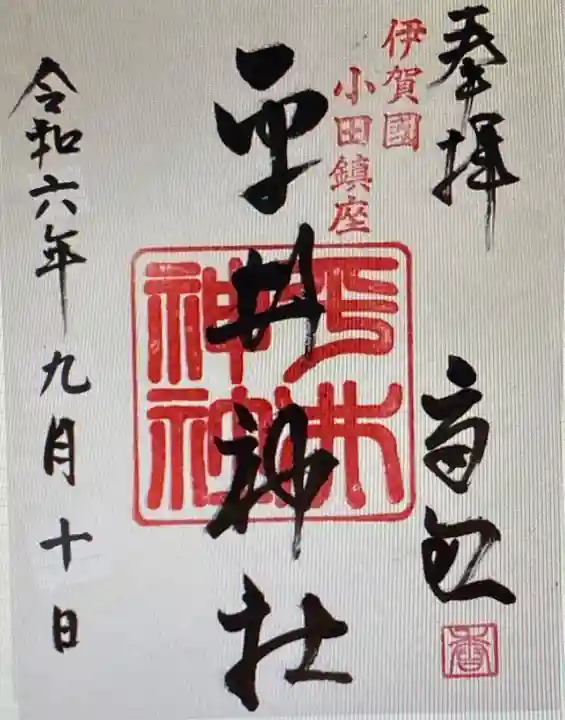 奉拝
伊賀國
小田鎮座
平井神社
平井神社
令和六年九月十日
香